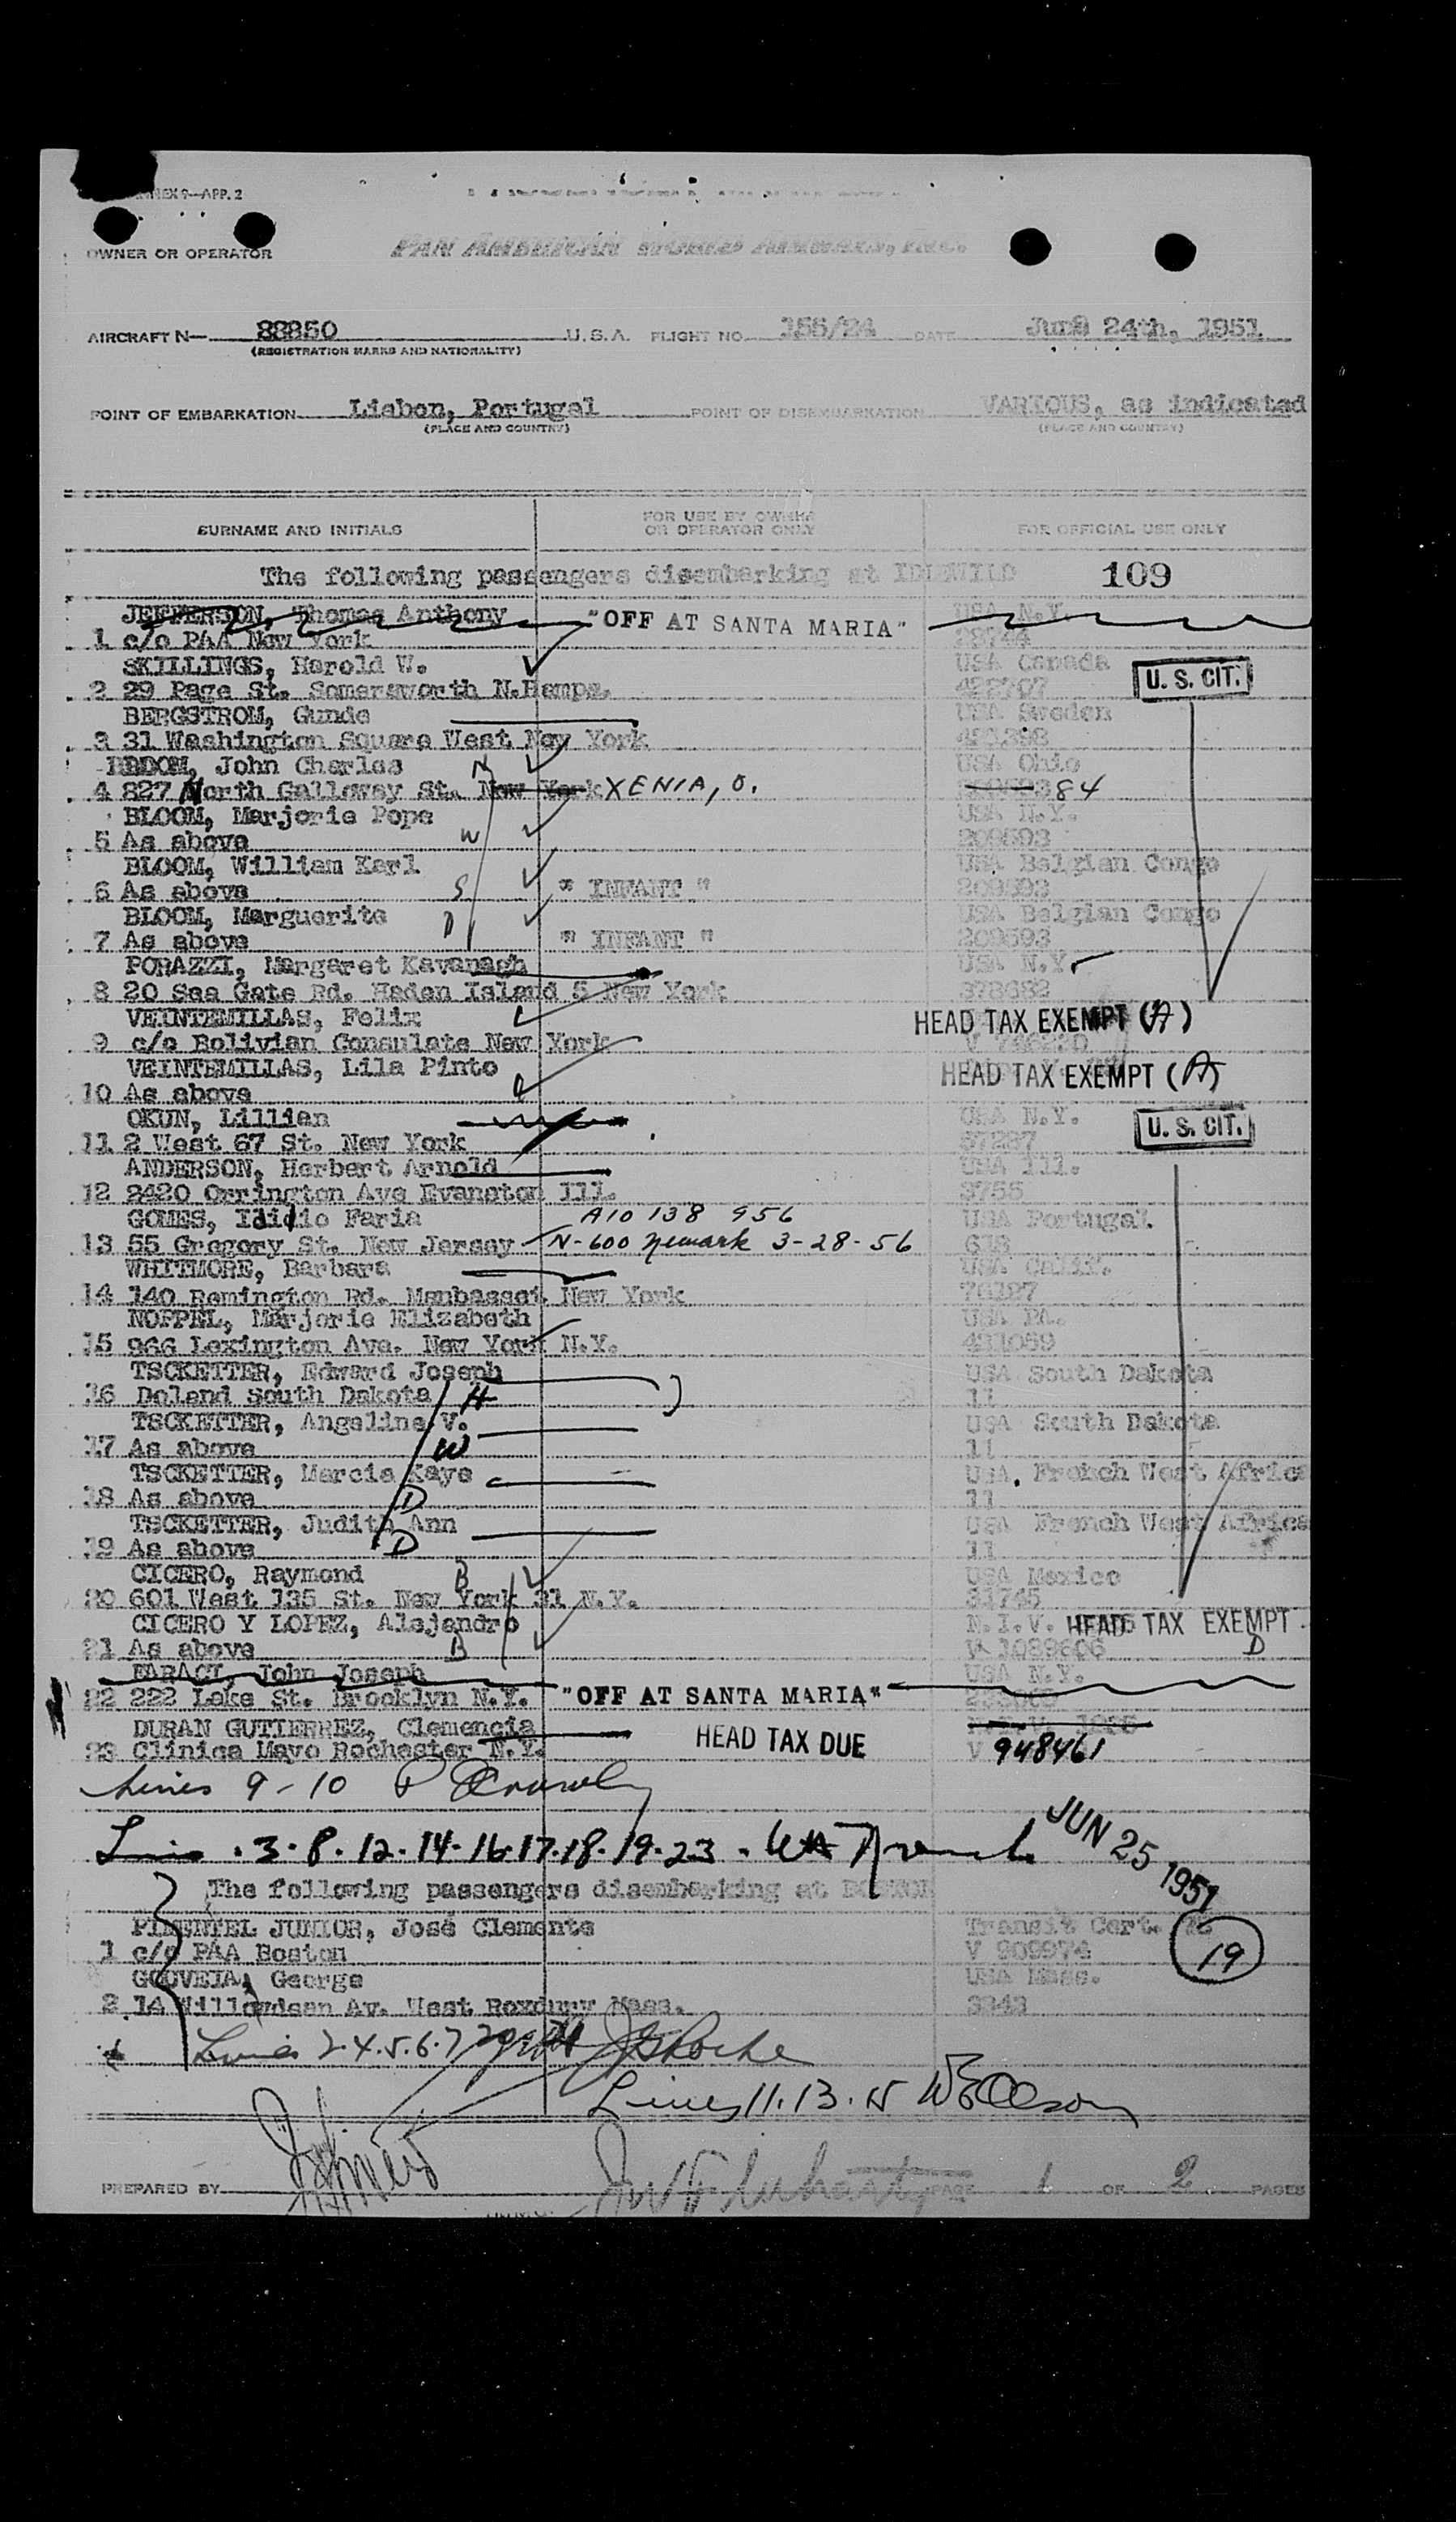 ANNEX 9—APP. 2
OWNER OR OPERATOR PAN AMERICAN WORLD AIRWAYS, INC.
AIRCRAFT N— 88850 U.S.A. FLIGHT NO. 155/24 DATE June 24th, 1951
(REGISTRATION MARKS AND NATIONALITY)
POINT OF EMBARKATION Lisbon, Portugal POINT OF DISEMBARKATION VARIOUS, as indicated
(PLACE AND COUNTRY) (PLACE AND COUNTRY)
SURNAME AND INITIALS FOR USE BY OWNER OR OPERATOR ONLY FOR OFFICIAL USE ONLY
The following passengers disembarking at IDLEWILD 109
JEFFERSON, Thomas Anthony "OFF AT SANTA MARIA" USA N.Y.
1 c/o PAA New York 28744
SKILLINGS, Harold W. USA Canada U. S. CIT.
2 29 Page St. Somersworth N.Hemps. 422707
BERGSTROM, Gunda USA Sweden
3 31 Washington Square West New York
BLOOM, John Charles USA Ohio
4 827 North Galloway St. New York XENIA, O. 384
BLOOM, Marjorie Pope W USA N.Y.
5 As above 209593
BLOOM, William Karl USA Belgian Congo
6 As above S " INFANT " 209593
BLOOM, Marguerite D USA Belgian Congo
7 As above " INFANT " 209593
PORAZZI, Margaret Kavanagh USA N.Y.
8 20 Sea Gate Rd. Heden Island 5 New York 378682
VEINTEMILLAS, Felix HEAD TAX EXEMPT (A)
9 c/o Bolivian Consulate New York
VEINTEMILLAS, Lila Pinto HEAD TAX EXEMPT (A)
10 As above
OKUN, Lillian USA N.Y. U. S. CIT.
11 2 West 67 St. New York 37287
ANDERSON, Herbert Arnold USA Ill.
12 2420 Orrington Ave Evanston Ill. 3755
GOMES, Ididio Faria A10 138 956 USA Portugal
13 55 Gregory St. New Jersey N-600 Newark 3-28-56 618
WHITMORE, Barbara USA Calif.
14 140 Remington Rd. Manhasset New York 76187
NOPPEL, Marjorie Elizabeth USA PA.
15 966 Lexington Ave. New York N.Y. 431059
TSCKETTER, Edward Joseph USA South Dakota
16 Doland South Dakota H 11
TSCKETTER, Angeline V. USA South Dakota
17 As above W 11
TSCKETTER, Marcia Kaye USA. French West Africa
18 As above D 11
TSCKETTER, Judith Ann USA French West Africa
19 As above D 11
CICERO, Raymond B USA Mexico
20 601 West 135 St. New York 31 N.Y. 31745
CICERO Y LOPEZ, Alejandro N.I.V. HEAD TAX EXEMPT
21 As above B V 1088606 D
FARACI, John Joseph USA N.Y.
22 222 Lake St. Brooklyn N.Y. "OFF AT SANTA MARIA"
DURAN GUTIERREZ, Clemencia HEAD TAX DUE
23 Clinica Mayo Rochester N.Y. V 948461
Lines 9-10
Lines 3-8-12-14-16-17-18-19-23
JUN 25 1951
The following passengers disembarking at BOSTON
PIMENTEL JUNIOR, José Clemente Transit Cert.
1 c/o PAA Boston V 909974 19
GOUVEIA, George USA Mass.
2 14 Willowdsen Av. West Roxbury Mass. 3343
Lines 2.4.5.6.7
Lines 11.13.15
PREPARED BY PAGE 1 OF 2 PAGES